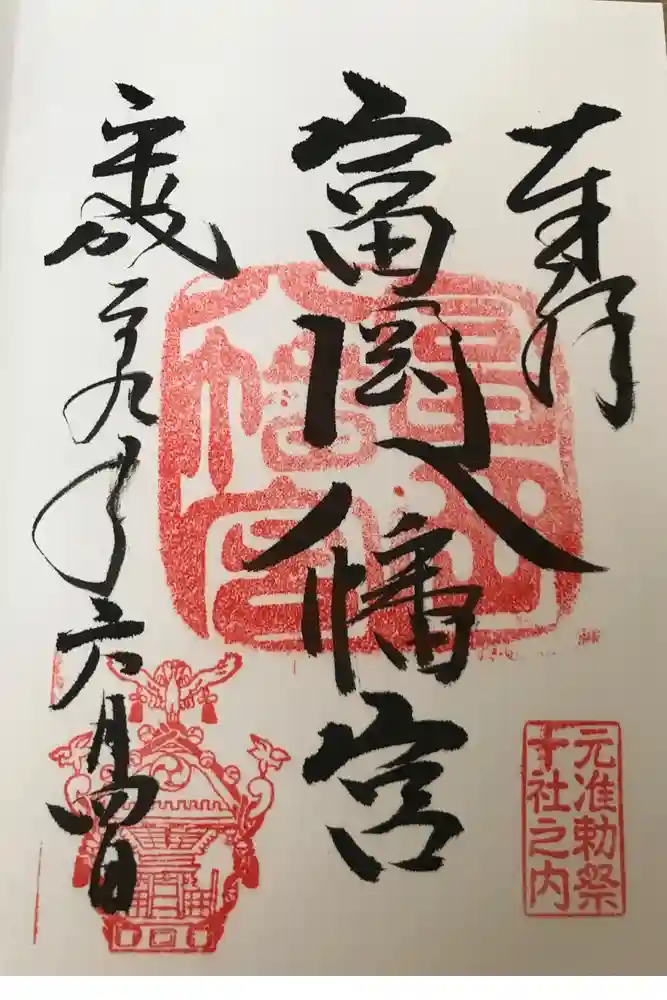 奉拝
富岡八幡宮
平成二十九年六月四日
元准勅祭
十社之内